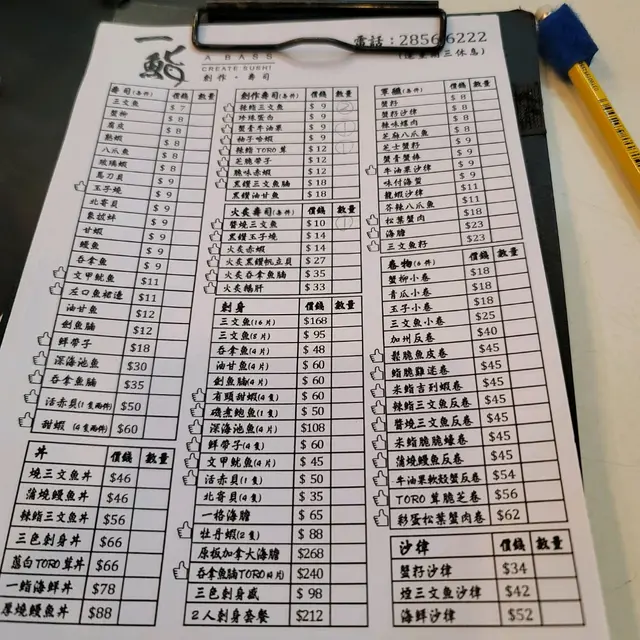 一鮨
A BASS
CREATE SUSHI
創作·壽司
電話:2856 6222
壽司(每件) 價錢 數量
三文魚 $ 7
蟹柳 $ 8
腐皮 $ 8
熟蝦 $ 8
八爪魚 $ 8
玻璃蝦 $ 8
馬刀貝 $ 9
玉子燒 $ 9
北寄貝 $ 9
象拔蚌 $ 9
甘蝦 $ 9
鰻魚 $ 9
吞拿魚 $ 9
文甲魷魚 $11
左口魚裙邊 $11
油甘魚 $12
劍魚腩 $12
鮮帶子 $18
深海池魚 $30
吞拿魚腩 $35
活赤貝(1隻兩件) $50
甜蝦 (4隻兩件) $60
丼 價錢 數量
燒三文魚丼 $46
蒲燒鰻魚丼 $46
辣鮨三文魚丼 $56
三色刺身丼 $66
蔥白TORO茸丼 $66
一鮨海鮮丼 $78
厚燒鰻魚丼 $88
創作壽司(每件) 價錢 數量
辣鮨三文魚 $ 9
珍珠蛋白 $ 9
蟹青牛油果 $ 9
柚子哈蝦 $ 9
辣鮨TORO茸 $12
芝脆帶子 $12
脆味赤蝦 $12
黑鑽三文魚腩 $18
黑鑽油甘魚 $18
火炙壽司(每件) 價錢 數量
醬燒三文魚 $10
黑鑽玉子燒 $14
火炙赤蝦 $14
火炙黑鑽帆立貝 $27
火炙吞拿魚腩 $35
火炙鵝肝 $33
刺身 價錢 數量
三文魚(16片) $168
三文魚(8片) $ 95
吞拿魚(4片) $ 48
油甘魚(4片) $ 60
劍魚腩(4片) $ 60
有頭甜蝦(4隻) $ 60
磯煮鮑魚(1隻) $ 50
深海池魚(4片) $108
鮮帶子(4隻) $ 60
文甲魷魚(4片) $ 45
活赤貝(1隻) $ 50
北寄貝(4隻) $ 35
一格海膽 $ 65
牡丹蝦(2隻) $ 88
原板加拿大海膽 $268
吞拿魚腩TORO(4片) $240
三色刺身盛 $ 98
2人刺身套餐 $212
軍艦(每件) 價錢 數量
蟹籽 $ 8
蟹籽沙律 $ 8
辣味螺肉 $ 8
芝麻八爪魚 $ 8
芝士蟹籽 $ 9
蟹青蟹棒 $ 9
牛油果沙律 $ 9
味付海蜇 $ 9
龍蝦沙律 $11
芥辣八爪魚 $11
松葉蟹肉 $18
海膽 $23
三文魚籽 $23
卷物(6件) 價錢 數量
蟹柳小卷 $18
青瓜小卷 $18
玉子小卷 $18
三文魚小卷 $25
加州反卷 $40
鬆脆魚皮卷 $45
鮨脆雞迷卷 $45
米鮨吉列蝦卷 $45
辣鮨三文魚反卷 $45
醬燒三文魚反卷 $45
米鮨脆脆蠔卷 $45
蒲燒鰻魚反卷 $45
牛油果軟殼蟹反卷 $54
TORO茸脆芝卷 $56
彩蛋松葉蟹肉卷 $62
沙律 價錢 數量
蟹籽沙律 $34
煙三文魚沙律 $42
海鮮沙律 $52